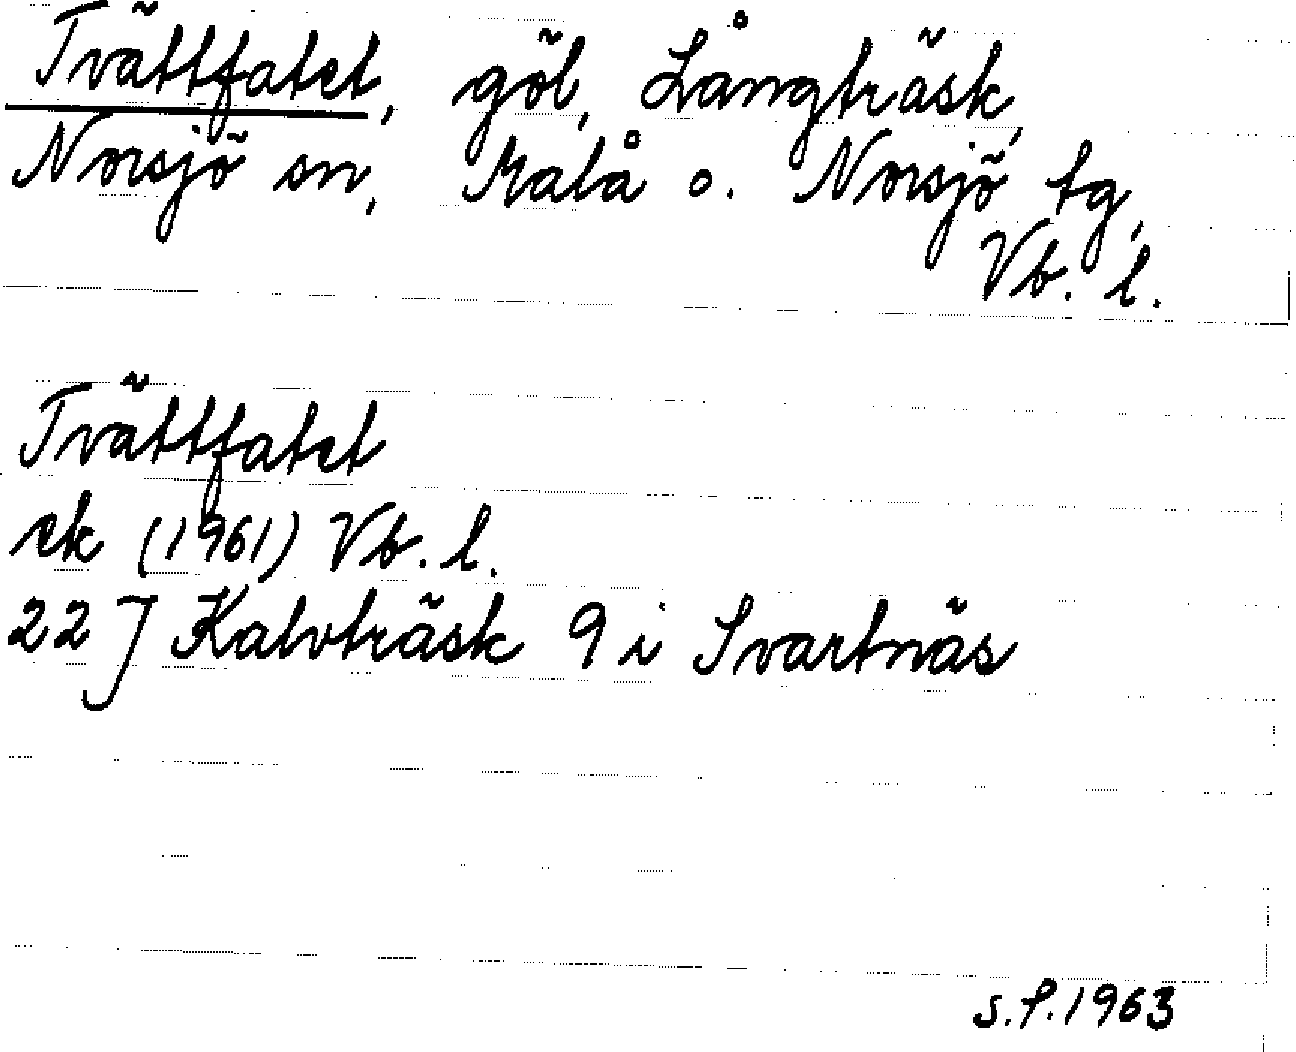 Tvättfatet, göl, Långträsk,
Norsjö sn, Malå o. Norsjö tg,
Vb. l.
Tvättfatet
ek (1961) Vb. l.
22 J Kalvträsk 9 i Svartnäs
S.P. 1963